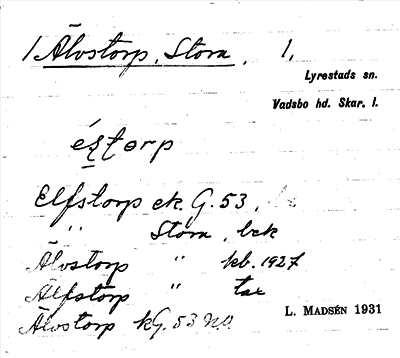 1 Älvstorp, Stora, 1,
Lyrestads sn.
Vadsbo hd. Skar. l.
Elfstorp ek. G. 53,
" Stora, bek
Älvstorp " kb. 1927
Älfstorp " tax
Älvstorp kG. 53 No.
L. MADSÉN 1931